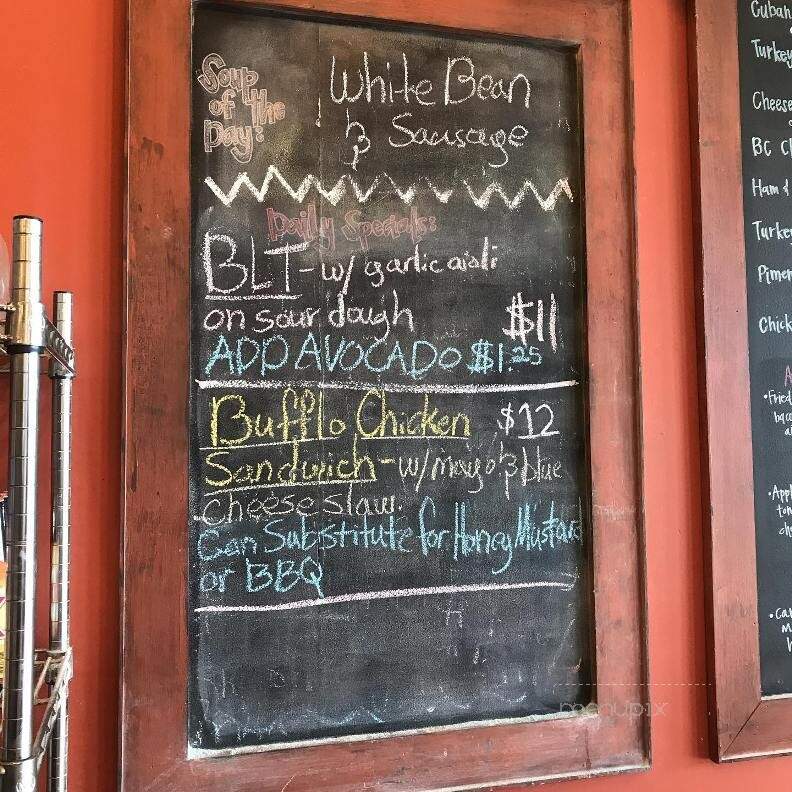 Soup
of the
Day:
White Bean
& Sausage
Daily Specials:
BLT - w/ garlic aioli
on sour dough $11
ADD AVOCADO $1.25
Bufflo Chicken $12
Sandwich - w/ mayo & blue
cheese slaw.
Can Substitute for Honey Mustard
or BBQ
Cuban
Turkey
Cheese
BC Ch
Ham &
Turkey
Pimen
Chick
•Fried
•Appl
menupix